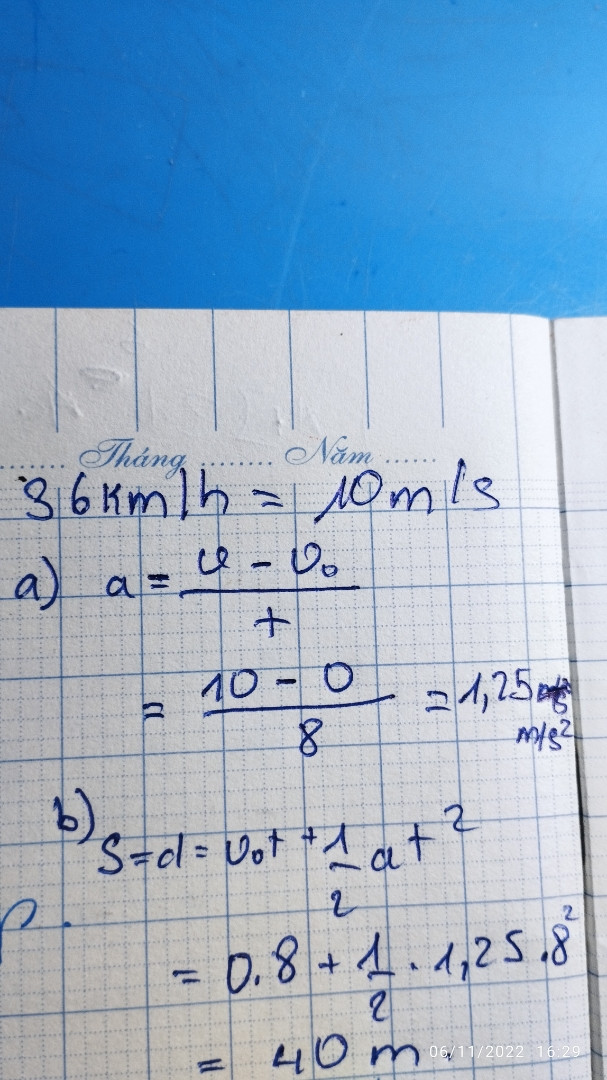 Tháng ........ Năm ......
36km/h = 10m/s
a) a = v - v₀
t
= 10 - 0 = 1,25
8 m/s²
b)
S = d = v₀t + 1 at²
2
= 0.8 + 1 . 1,25 .8²
2
= 40 m
06/11/2022 16:29